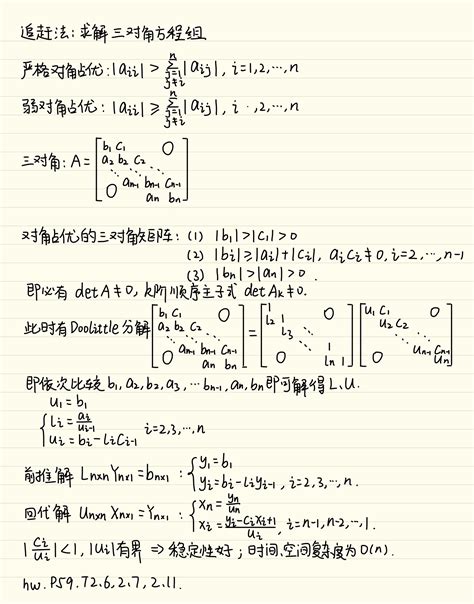 追赶法:求解三对角方程组
严格对角占优:|aᵢᵢ| > Σⁿⱼ₌₁,ⱼ≠ᵢ |aᵢⱼ|, i=1,2,…,n
弱对角占优:|aᵢᵢ| ≥ Σⁿⱼ₌₁,ⱼ≠ᵢ |aᵢⱼ|, i=,2,…,n
三对角:A=[b₁ c₁ 0
a₂ b₂ c₂
aₙ₋₁ bₙ₋₁ cₙ₋₁
0 aₙ bₙ]
对角占优的三对角矩阵:(1) |b₁|>|c₁|>0
(2) |bᵢ|≥|aᵢ|+|cᵢ|, aᵢcᵢ≠0, i=2,…,n-1
(3) |bₙ|>|aₙ|>0.
即必有 detA≠0, k阶顺序主子式 detAₖ≠0.
此时有Doolittle分解 [b₁ c₁ 0
a₂ b₂ c₂
aₙ₋₁ bₙ₋₁ cₙ₋₁
0 aₙ bₙ] = [1
l₂ 1
l₃
1
0 lₙ 1] [u₁ c₁
u₂ c₂
0 uₙ₋₁ cₙ₋₁
uₙ]
即依次比较 b₁,a₂,b₂,a₃,…bₙ₋₁,aₙ,bₙ即可解得L,U.
{u₁=b₁
lᵢ=aᵢ/uᵢ₋₁
uᵢ=bᵢ-lᵢcᵢ₋₁ i=2,3,…,n
前推解 Lₙₓₙ Yₙₓ₁=bₙₓ₁:{y₁=b₁
yᵢ=bᵢ-lᵢyᵢ₋₁, i=2,3,…,n.
回代解 Uₙₓₙ Xₙₓ₁=Yₙₓ₁:{xₙ=yₙ/uₙ
xᵢ=(yᵢ-cᵢxᵢ₊₁)/uᵢ, i=n-1,n-2,…,1.
|cᵢ/uᵢ|<1, |uᵢ|有界 ⇒ 稳定性好;时间、空间复杂度为O(n).
hw.P59.7 2.6,2.7,2.11.